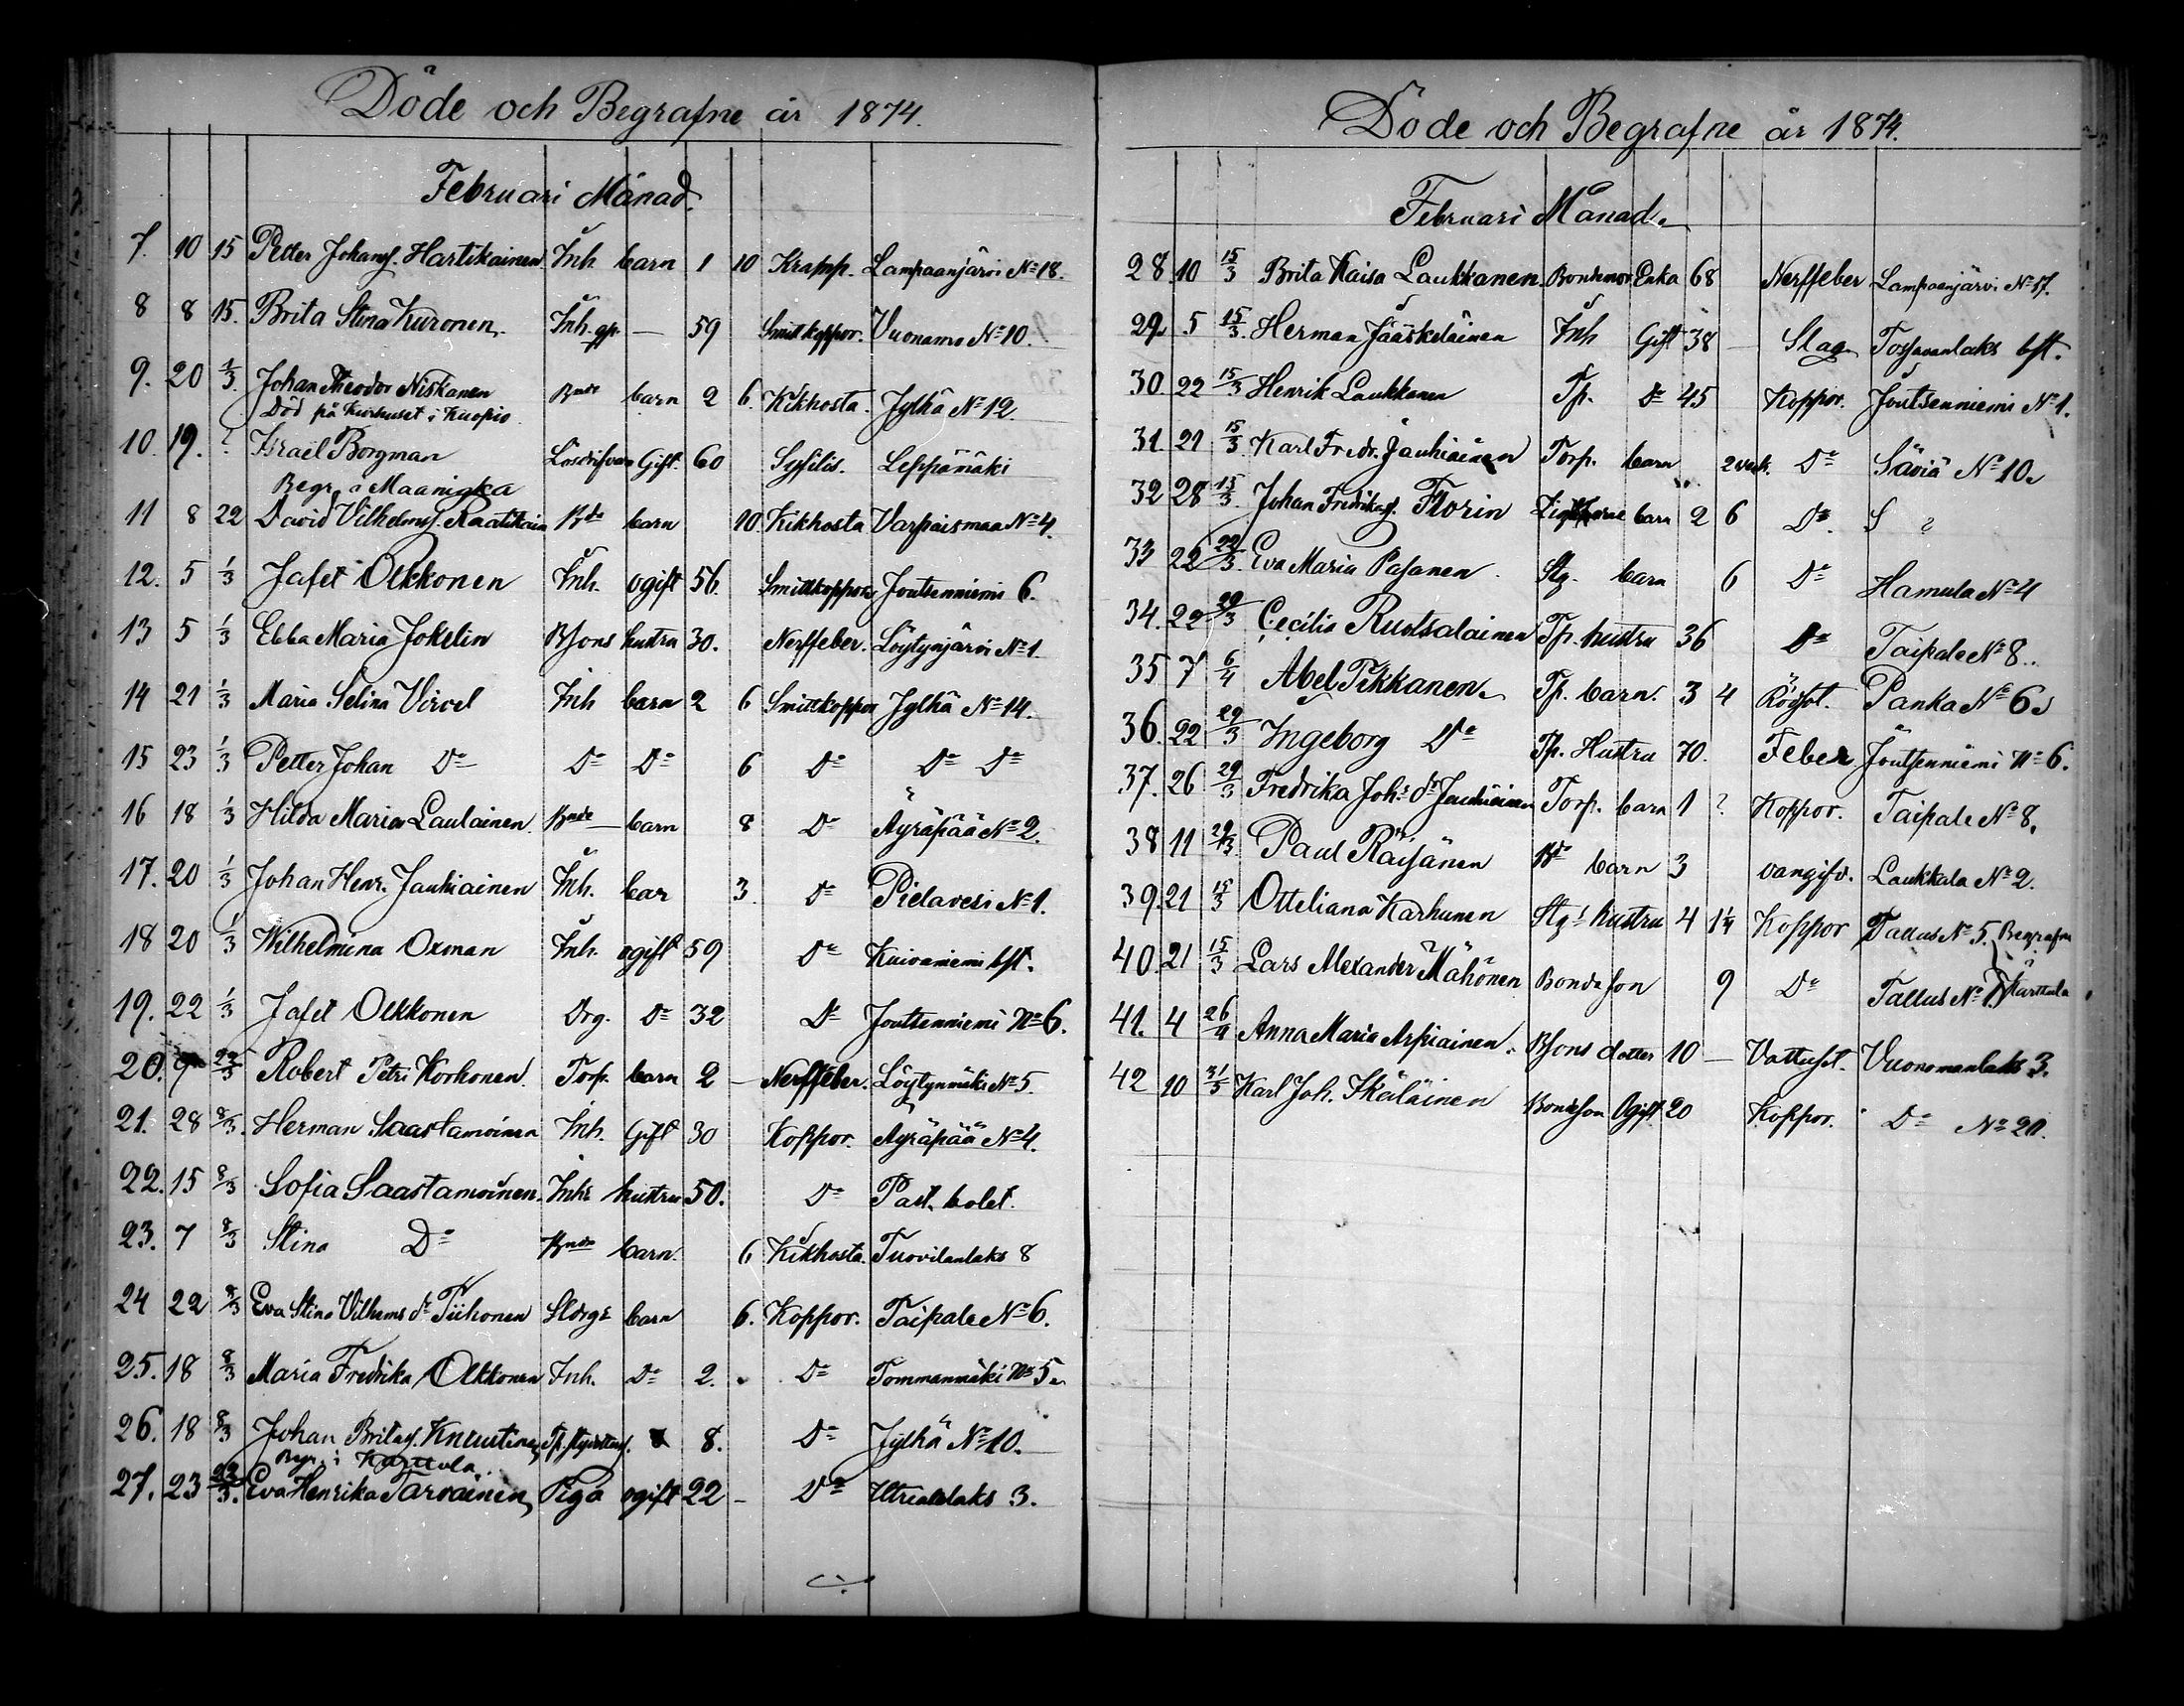 Döde och Begrafne år 1874.
Februari Månad.
7. 10 15 Petter Johans. Hartikainen Inh barn 1 10 Kramp. Lampaanjärvi No 18.
8 8 15. Brita Stina Kuronen. Inh. gp. — 59 Smittkoppor. Vuonamo No 10.
9. 20 1/3. Johan Theodor Niskanen Bnde barn 2 6. Kikhosta. Jylhä No 12.
Död på Kurhuset i Kuopio.
10. 19. ? Israel Borgman Lösdrifvare Gift. 60 Syfilis. Leppämäki
Begr. i Maaninka
11 8 22 David Vilhelms. Raatikain Bde barn 10. Kikhosta Varpaismaa No 4.
12. 5 1/3 Jafet Olkkonen Inh. ogift 56. Smittkoppor Joutsenniemi 6.
13 5 1/3 Ebba Maria Jokelin Bsons hustru 30. Nerffeber. Löytynjärvi No 1.
14 21 1/3 Maria Selina Virvel Inh barn 2 6 Smittkoppor Jylhä No 14.
15 23 1/3 Petter Johan Do Do Do 6 Do Do Do
16 18 1/3 Hilda Maria Laulainen. Bnde barn 8 Do Äyräpää No 2.
17. 20 1/3 Johan Henr. Jauhiainen Inh. bar 3. Do Pielavesi No 1.
18 20 1/3 Wilhelmina Oxman Inh. ogift 59 Do Kuivaniemi bst.
19. 22 1/3 Jafet Olkkonen Drg. Do 32 Do Joutsenniemi No 6.
20. 9 22/3 Robert Petri Korhonen. Torp. barn 2 — Nerffeber. Löytynmäki No 5.
21. 28 8/3. Herman Saastamoinen Inh. Gift 30 Koppor. Äyräpää No 4.
22. 15 8/3 Sofia Saastamoinen. Inhs hustru 50. Do Past. bolet.
23. 7 8/3 Stina Do Bnde barn. 6 Kikhosta. Tuovilanlaks 8
24 22 8/3 Eva Stina Vilhems dr Tiihonen Sldrgs barn 6. Koppor. Taipale No 6.
25. 18 8/3 Maria Fredrika Olkkonen Inh. Do 2. Do Tommanmäki No 5.
26. 18 8/3 Johan Britas. Knuutinen Tp. 8. Do Jylhä No 10.
Begr. i Karttula.
27. 23 22/3. Eva Henrika Tarvainen Piga ogift 22 — Do Utrialaks 3.
Döde och Begrafne år 1874.
Februari Månad.
28. 10 15/3 Brita Kaisa Laukkanen. Bondemor Enka 68 Nerffeber Lampaanjärvi No 17.
29. 5 15/3. Herman Jääskeläinen Inh Gift 38 — Slag Tossavanlaks bst.
30. 22 15/3 Henrik Laukkanen Tp. Do 45 Koppor. Joutsenniemi No 1.
31. 21 15/3 Karl Fredr. Jauhiainen Torp. barn 2 veck. Do Säviä No 10.
32 28 15/3. Johan Fredriks. Florin barn 2 6 Do. S ?
33 22 22/3. Eva Maria Pasanen. Stg. barn 6 Do Hamula No 4
34. 22 29/3 Cecilia Ruotsalainen Tp. hustru 36 Do Taipale No 8.
35 7 6/4 Abel Pikkanen. Tp. barn. 3 4 Rödsot. Panka No 6.
36. 22 29/3 Ingeborg Do Tp. Hustru 70. Feber Joutsenniemi No 6.
37. 26 29/3 Fredrika Johs dr Jauhiainen Torp. barn 1 ? Koppor. Taipale No 8.
38 11 29/3. Paul Räisänen Bde barn 3 oangifv. Laukkala No 2.
39. 21 15/3 Otteliana Karhunen Stgs hustru 4 1/4 Koppor Tallus No 5. Begrafne
40. 21 15/3 Lars Alexander Mähönen Bondeson 9 Do Tallus No 1. i Karttula
41. 4 26/4 Anna Maria Arpiainen. Bsons dotter 10 — Vattusot. Vuonomanlaks 3.
42 10 31/5 Karl Joh. Ikäläinen Bondeson Ogift. 20 Koppor. Do No 20.